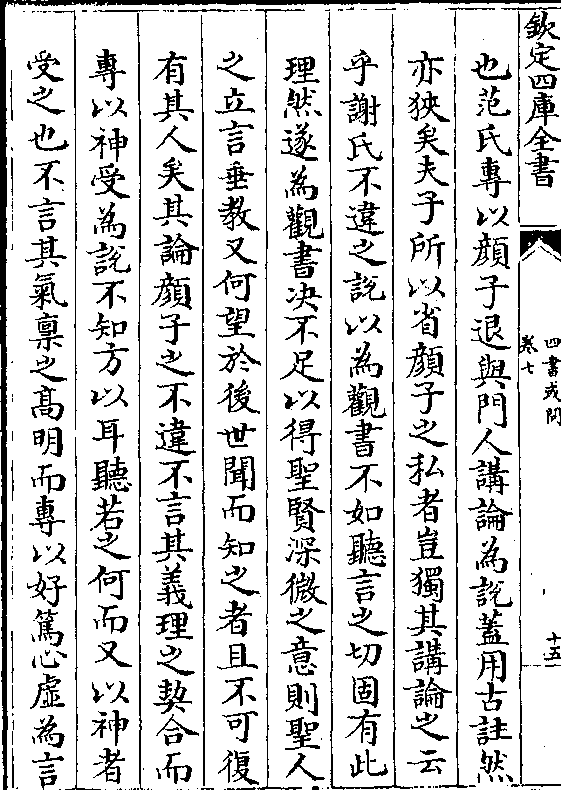 欽定四庫全書
四書或問
卷七
十五
也范氏專以顔子退與門人講論為說蓋用古註然
亦狹矣夫子所以省顔子之私者豈獨其講論之云
乎謝氏不違之說以為觀書不如聽言之切固有此
理然遂為觀書決不足以得聖賢深微之意則聖人
之立言垂教又何望於後世聞而知之者且不可復
有其人矣其論顔子之不違不言其義理之契合而
專以神受為說不知方以耳聽若之何而又以神者
受之也不言其氣禀之髙明而專以好篤心虛為言